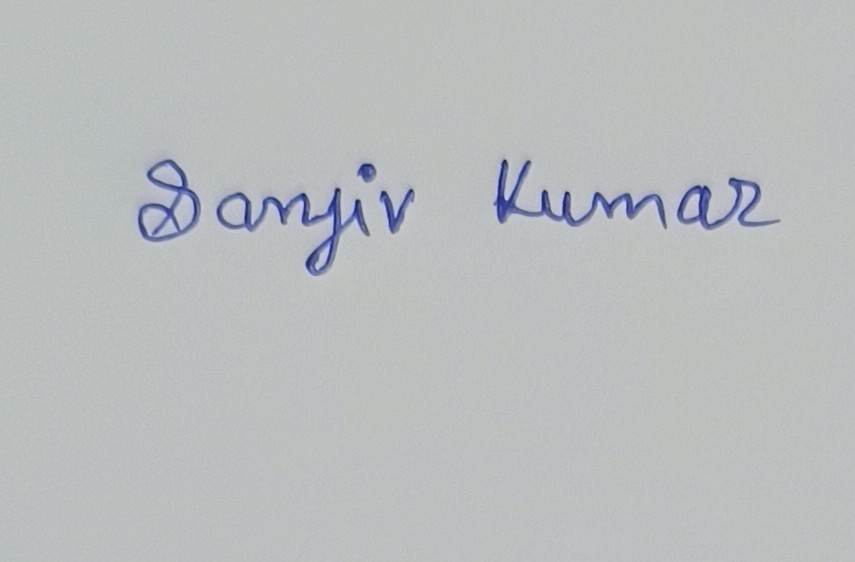 Sanjiv Kumar